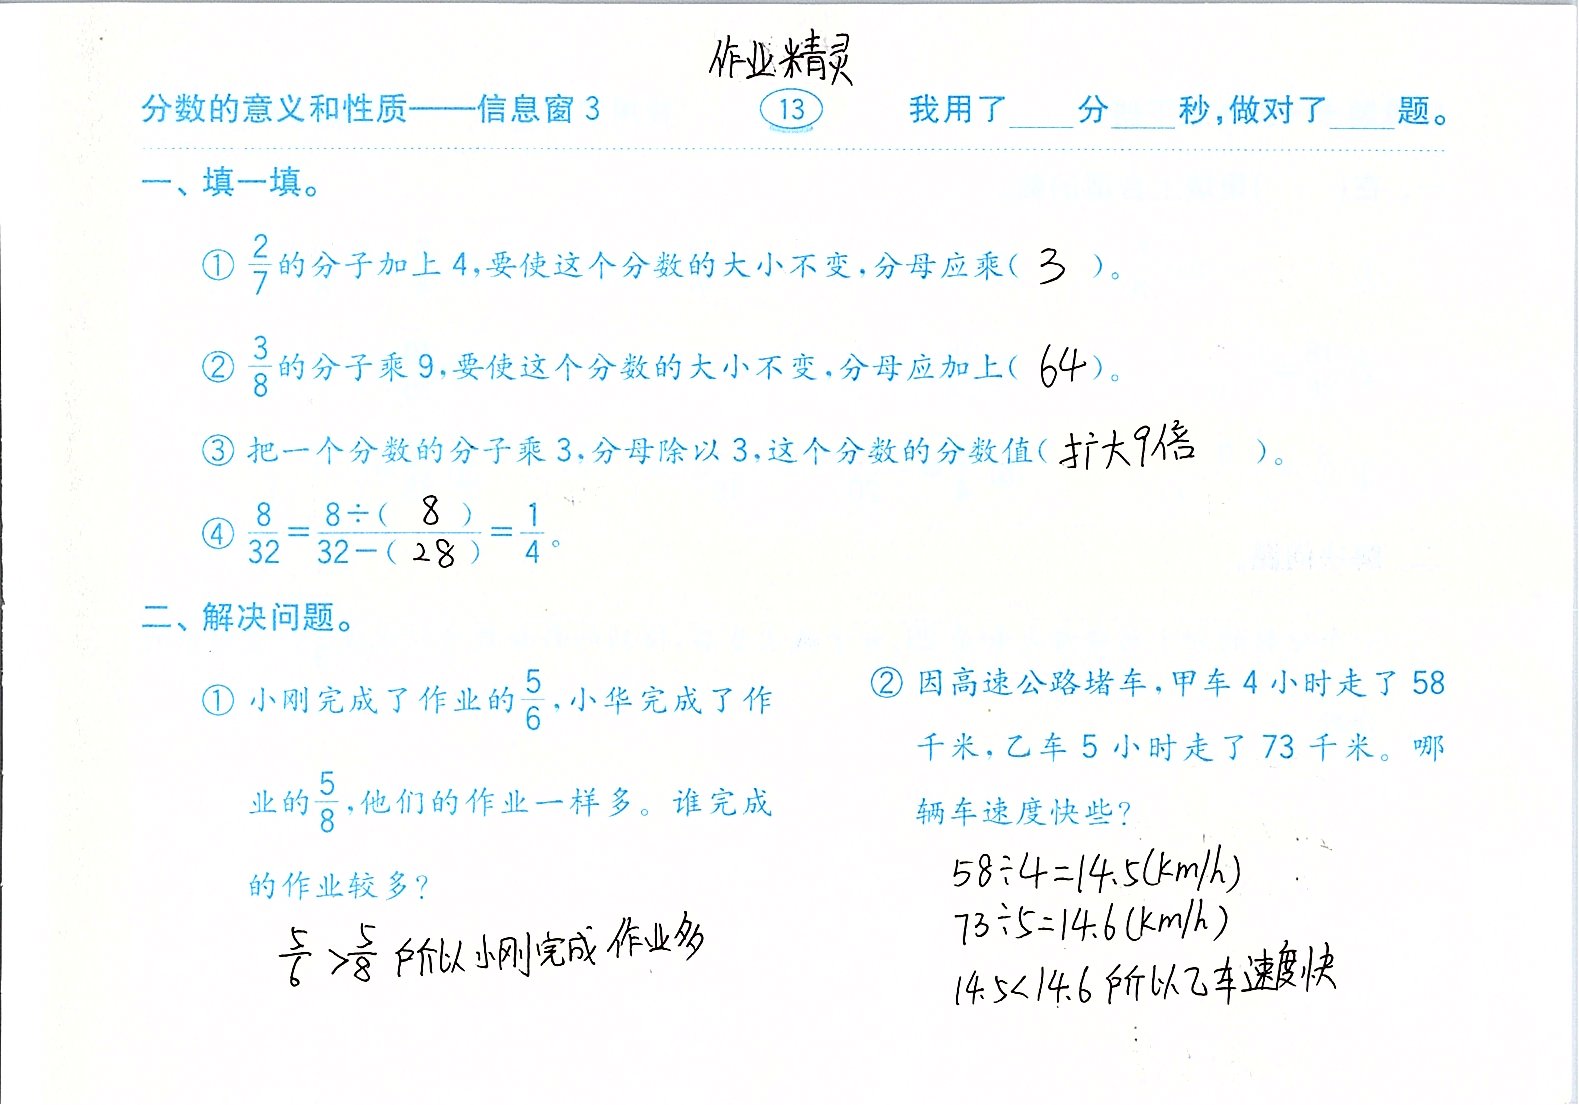 作业精灵
分数的意义和性质——信息窗 3 13 我用了____分____秒,做对了____题。
一、填一填。
① 2/7的分子加上 4,要使这个分数的大小不变,分母应乘( 3 )。
② 3/8的分子乘 9,要使这个分数的大小不变,分母应加上( 64 )。
③ 把一个分数的分子乘 3,分母除以 3,这个分数的分数值( 扩大9倍 )。
④ 8/32=8÷( 8 )/32-( 28 )=1/4。
二、解决问题。
① 小刚完成了作业的5/6,小华完成了作
业的5/8,他们的作业一样多。谁完成
的作业较多?
5/6>5/8 所以小刚完成作业多
② 因高速公路堵车,甲车 4 小时走了 58
千米,乙车 5 小时走了 73 千米。哪
辆车速度快些?
58÷4=14.5(km/h)
73÷5=14.6(km/h)
14.5<14.6 所以乙车速度快